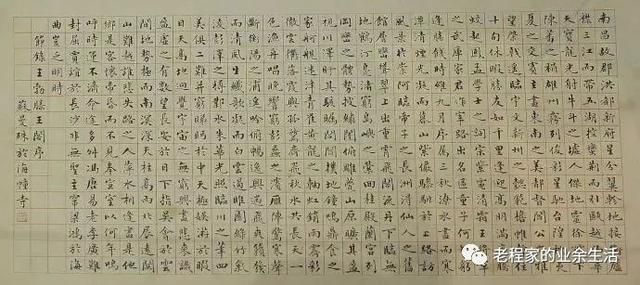 南昌故郡洪都新府星分翼軫地接衡廬
襟三江而帶五湖控蠻荊而引甌越物華
天寶龍光射牛斗之墟人傑地靈徐孺下
陳蕃之榻雄州霧列俊采星馳臺隍枕夷
夏之交賓主盡東南之美都督閻公之雅
望棨戟遙臨宇文新州之懿範襜帷暫駐
十旬休暇勝友如雲千里逢迎高朋滿座騰
蛟起鳳孟學士之詞宗紫電清霜王將軍
之武庫家君作宰路出名區童子何知躬
逢勝餞時維九月序屬三秋潦水盡而寒
潭清煙光凝而暮山紫儼驂騑於上路訪
風景於崇阿臨帝子之長洲得仙人之舊
館層巒聳翠上出重霄飛閣流丹下臨無
地鶴汀鳧渚窮島嶼之縈迴桂殿蘭宮列
岡巒之體勢披繡闥俯雕甍山原曠其盈
視川澤紆其駭矚閭閻撲地鐘鳴鼎食之
家舸艦迷津青雀黃龍之舳虹銷雨霽彩
徹雲衢落霞與孤鶩齊飛秋水共長天一
色漁舟唱晚響窮彭蠡之濱雁陣驚寒聲
斷衡陽之浦遙吟俯暢逸興遄飛爽籟發
而清風生纖歌凝而白雲遏睢園綠竹氣
淩彭澤之樽鄴水朱華光照臨川之筆四
美俱二難并窮睇眄於中天極娛遊於暇
日天高地迥覺宇宙之無窮興盡悲來識
盈虛之有數望長安於日下指吳會於雲
間地勢極而南溟深天柱高而北辰遠關
山難越誰悲失路之人萍水相逢盡是他
鄉之客懷帝閽而不見奉宣室以何年嗚
呼時運不濟命途多舛馮唐易老李廣難
封屈賈誼於長沙非無聖主竄梁鴻於海
曲豈乏明時
節錄王勃滕王閣序
曼殊於海幢寺
老程家的业余生活